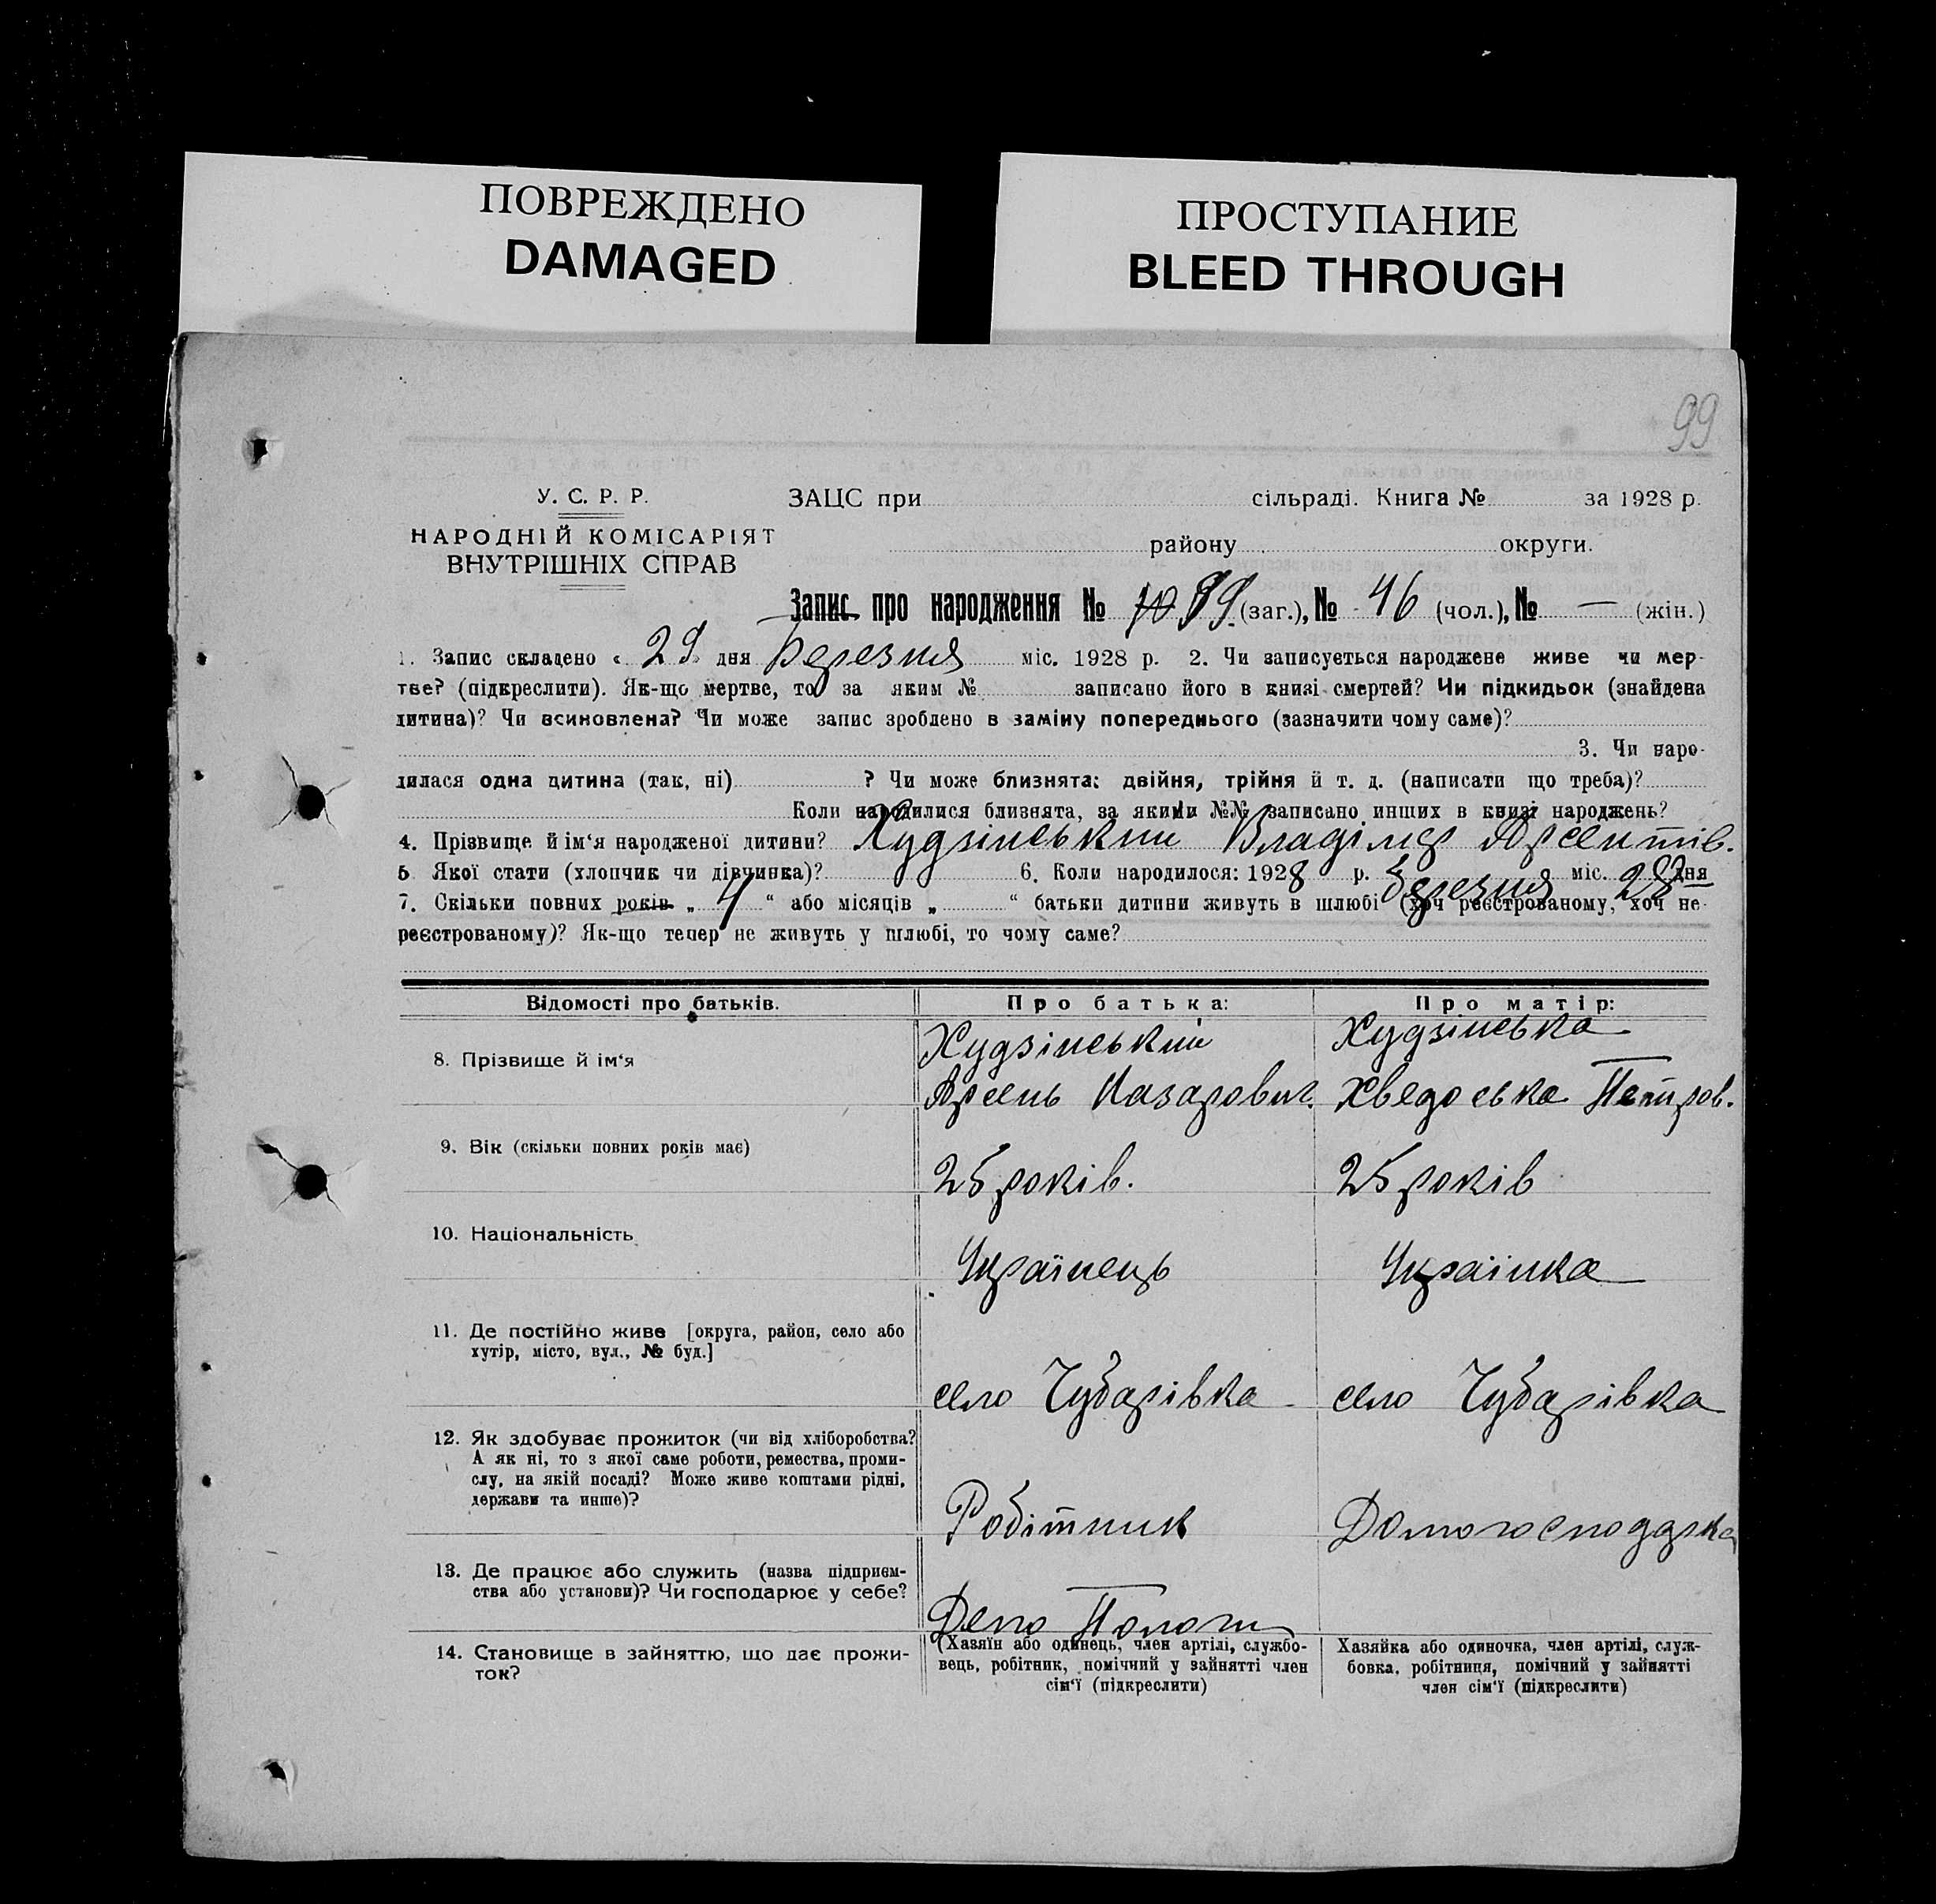 ПОВРЕЖДЕНО
DAMAGED
ПРОСТУПАНИЕ
BLEED THROUGH
99
У. С. Р. Р.
НАРОДНІЙ КОМІСАРІЯТ
ВНУТРІШНІХ СПРАВ
ЗАЦС при сільраді. Книга № за 1928 р.
району округи.
Запис про народження № 89 (заг.), № 46 (чол.), № — (жін.)
1. Запис складено « 29 » дня Березня міс. 1928 р. 2. Чи записується народжене живе чи мер-
тве? (підкреслити). Як-що мертве, то за яким № записано його в книзі смертей? Чи підкидьок (знайдена
дитина)? Чи всиновлена? Чи може запис зроблено в заміну попереднього (зазначити чому саме)?
3. Чи наро-
дилася одна дитина (так, ні) ? Чи може близнята: двійня, трійня й т. д. (написати що треба)?
Коли народилися близнята, за якими №№ записано инших в книзі народжень?
4. Прізвище й ім‘я народженої дитини? Худзінський Владімір Арсентів.
5 Якої стати (хлопчик чи дівчинка)? 6. Коли народилося: 1928 р. Березня міс. 28 дня
7. Скільки повних років „ 4 “ або місяців „ “ батьки дитини живуть в шлюбі (хоч реєстрованому, хоч не-
реєстрованому)? Як-що тепер не живуть у шлюбі, то чому саме?
Відомості про батьків. Про батька: Про матір:
8. Прізвище й ім‘я
Худзінський
Арсень Назарович.
Худзінська
Хведоська Петров.
9. Вік (скільки повних років має)
25 років.
25 років
10. Національність
Українець
Українка
11. Де постійно живе [округа, район, село або
хутір, місто, вул., № буд.]
село Чубарівка
село Чубарівка
12. Як здобуває прожиток (чи від хліборобства?
А як ні, то з якої саме роботи, ремества, проми-
слу, на якій посаді? Може живе коштами рідні,
держави та инше)?
Робітник
Домогосподарка
13. Де працює або служить (назва підприєм-
ства або установи)? Чи господарює у себе?
Депо Пологи
14. Становище в зайняттю, що дає прожи-
ток?
(Хазяїн або одинець, член артілі, службо-
вець, робітник, помічний у зайнятті член
сім‘ї (підкреслити)
Хазяйка або одиночка, член артілі, служ-
бовка, робітниця, помічний у зайнятті
член сім‘ї (підкреслити)